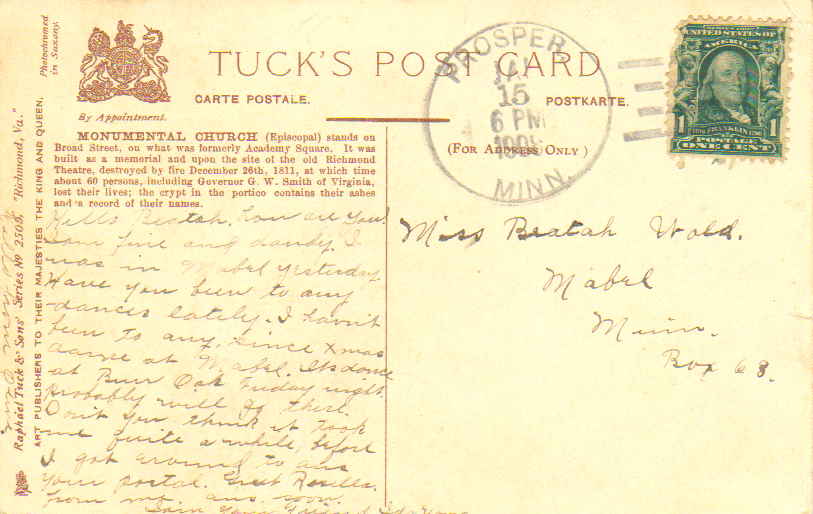 TUCK'S POST CARD
CARTE POSTALE.
POSTKARTE.
By Appointment.
(FOR ADDRESS ONLY)
Photochromed
in Saxony.
Raphael Tuck & Sons' Series No 2505, "Richmond, Va."
ART PUBLISHERS TO THEIR MAJESTIES THE KING AND QUEEN.
MONUMENTAL CHURCH (Episcopal) stands on
Broad Street, on what was formerly Academy Square. It was
built as a memorial and upon the site of the old Richmond
Theatre, destroyed by fire December 26th, 1811, at which time
about 60 persons, including Governor G. W. Smith of Virginia,
lost their lives; the crypt in the portico contains their ashes
and a record of their names.
Hello Beatah, how are you?
I am fine and dandy. I
was in Mabel yesterday.
Have you been to any
dances lately. I havn't
been to any, since Xmas
dance at Mabel. Its dance
at Burr Oak Friday night.
Probably will go there.
Don't you think it took
me quite a while, before
I got around to ans
your postal. Greet
from me. ans. soon.
Your Friend
PROSPER
15
6 PM
MINN.
UNITED STATES OF
AMERICA
FRANKLIN
POSTAGE
1 1
ONE CENT
Miss Beatah Wold.
Mabel
Minn.
Box 68.